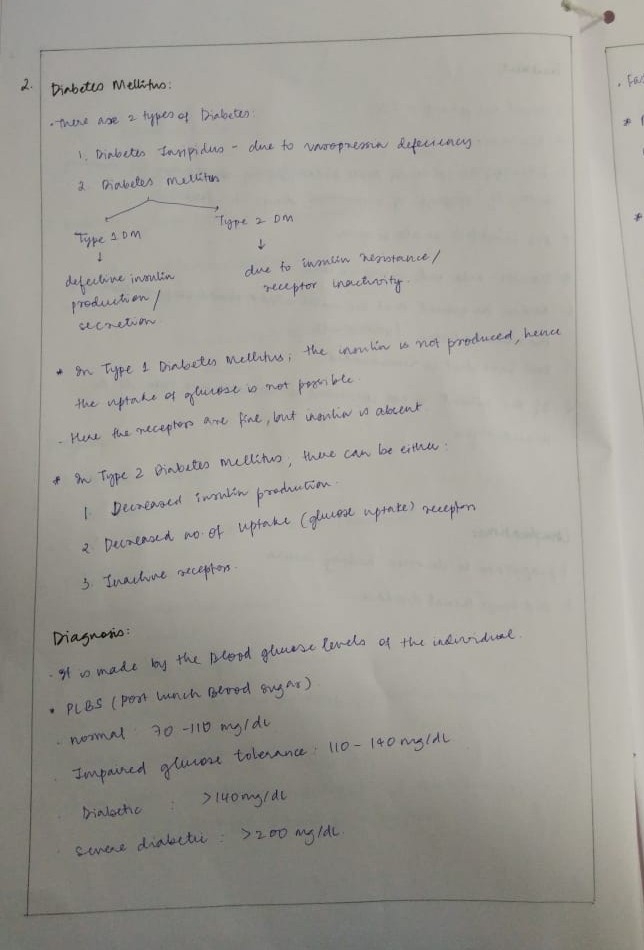 2. Diabetes Mellitus:
. There are 2 types of Diabetes:
1. Diabetes Insipidus - due to vasopressin deficiency
2. Diabetes Mellitus
Type 1 DM
↓
defective insulin
production /
secretion
Type 2 DM
↓
due to insulin resistance /
receptor inactivity.
* In Type 1 Diabetes Mellitus; the insulin is not produced, hence
the uptake of glucose is not possible.
- Here the receptors are fine, but insulin is absent
* In Type 2 Diabetes Mellitus, there can be either:
1. Decreased insulin production.
2. Decreased no. of uptake (glucose uptake) receptors
3. Inactive receptors.
Diagnosis:
. It is made by the Blood glucose levels of the individual.
• PLBS (Post lunch Blood sugar)
. normal 70 -110 mg/dL
. Impaired glucose tolerance : 110 - 140 mg/dL
. Diabetic : >140 mg/dL
. Severe diabetic : >200 mg/dL.